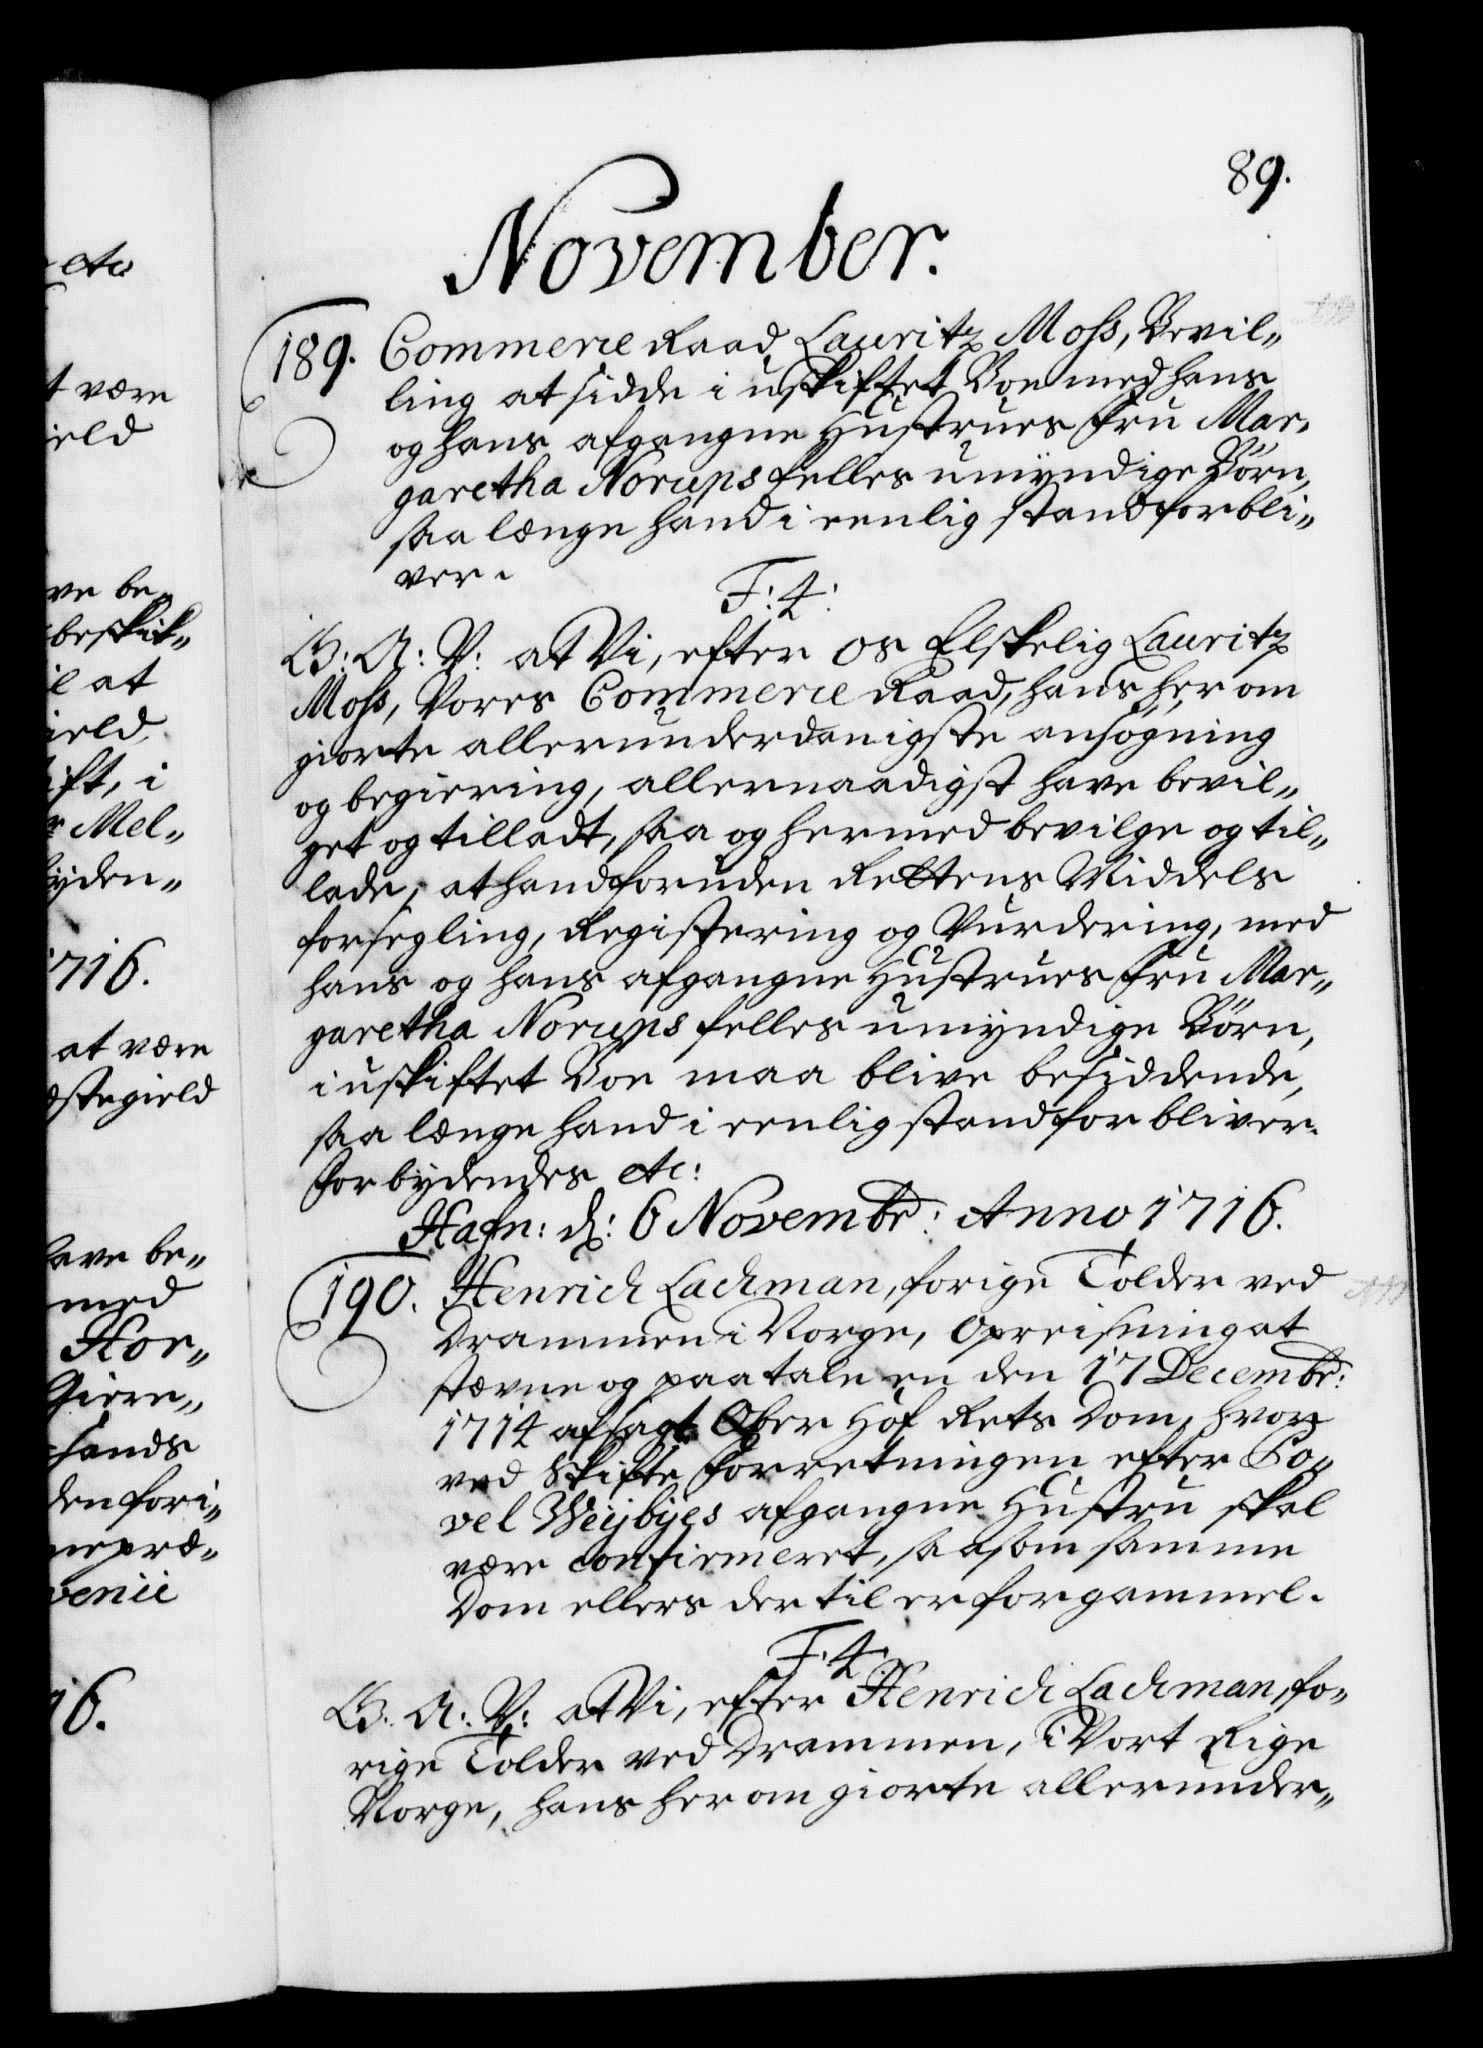 etc
t være
ield
ve be„
beskik„
il at
ield,
ift, i
r Mel„
yden„
1716.
at være
østegield
have be„
med
Hor„
Giere„
hands
den fori„
nepræ„
venii
16.
89.
November.
189. Commercie Raad Lauritz Moss, Bevil„
ling at sidde i uskiftet Boe med hans
og hans afgangne Hustrues Fru Mar„
garetha Norups felles umÿndige Börn,
saa længe hand i eenlig stand forbli„
ver.
F: 4:
G: A: V: at Vi, efter os Elskelig Lauritz
Moss, Vores Commercie Raad, hans her om
giorte allerunderdanigste ansøgning
og begiering, allernaadigst have bevil„
get og tilladt, saa og hermed bevilge og til„
lade, at hand foruden Rettens Middels
forsegling, Registering og Vurdering, med
hans og hans afgangne Hustrues Fru Mar„
garetha Norups felles umÿndige Börn,
i uskiftet Boe maa blive besiddende,
saa længe hand i eenlig stand forbliver.
Forbÿdendes etc:
Hafn: d: 6 Novembr: Anno 1716.
190. Henrich Lachman, forige Tolder ved
Drammen i Norge, Opreisning at
stævne og paatale en den 17 Decembr:
1714 afsagt Ober Hof Rets Dom, hvor
ved Skifte Forretningen efter Po„
vel Weÿbÿes afgangne Hustru skal
være confirmeret, saasom samme
Dom ellers der til er for gammel.
F: 4.
G: A: V: at Vi, efter Henrich Lachman, fo„
rige Tolder ved Drammen, i Vort Rige
Norge, hans her om giorte allerunder„